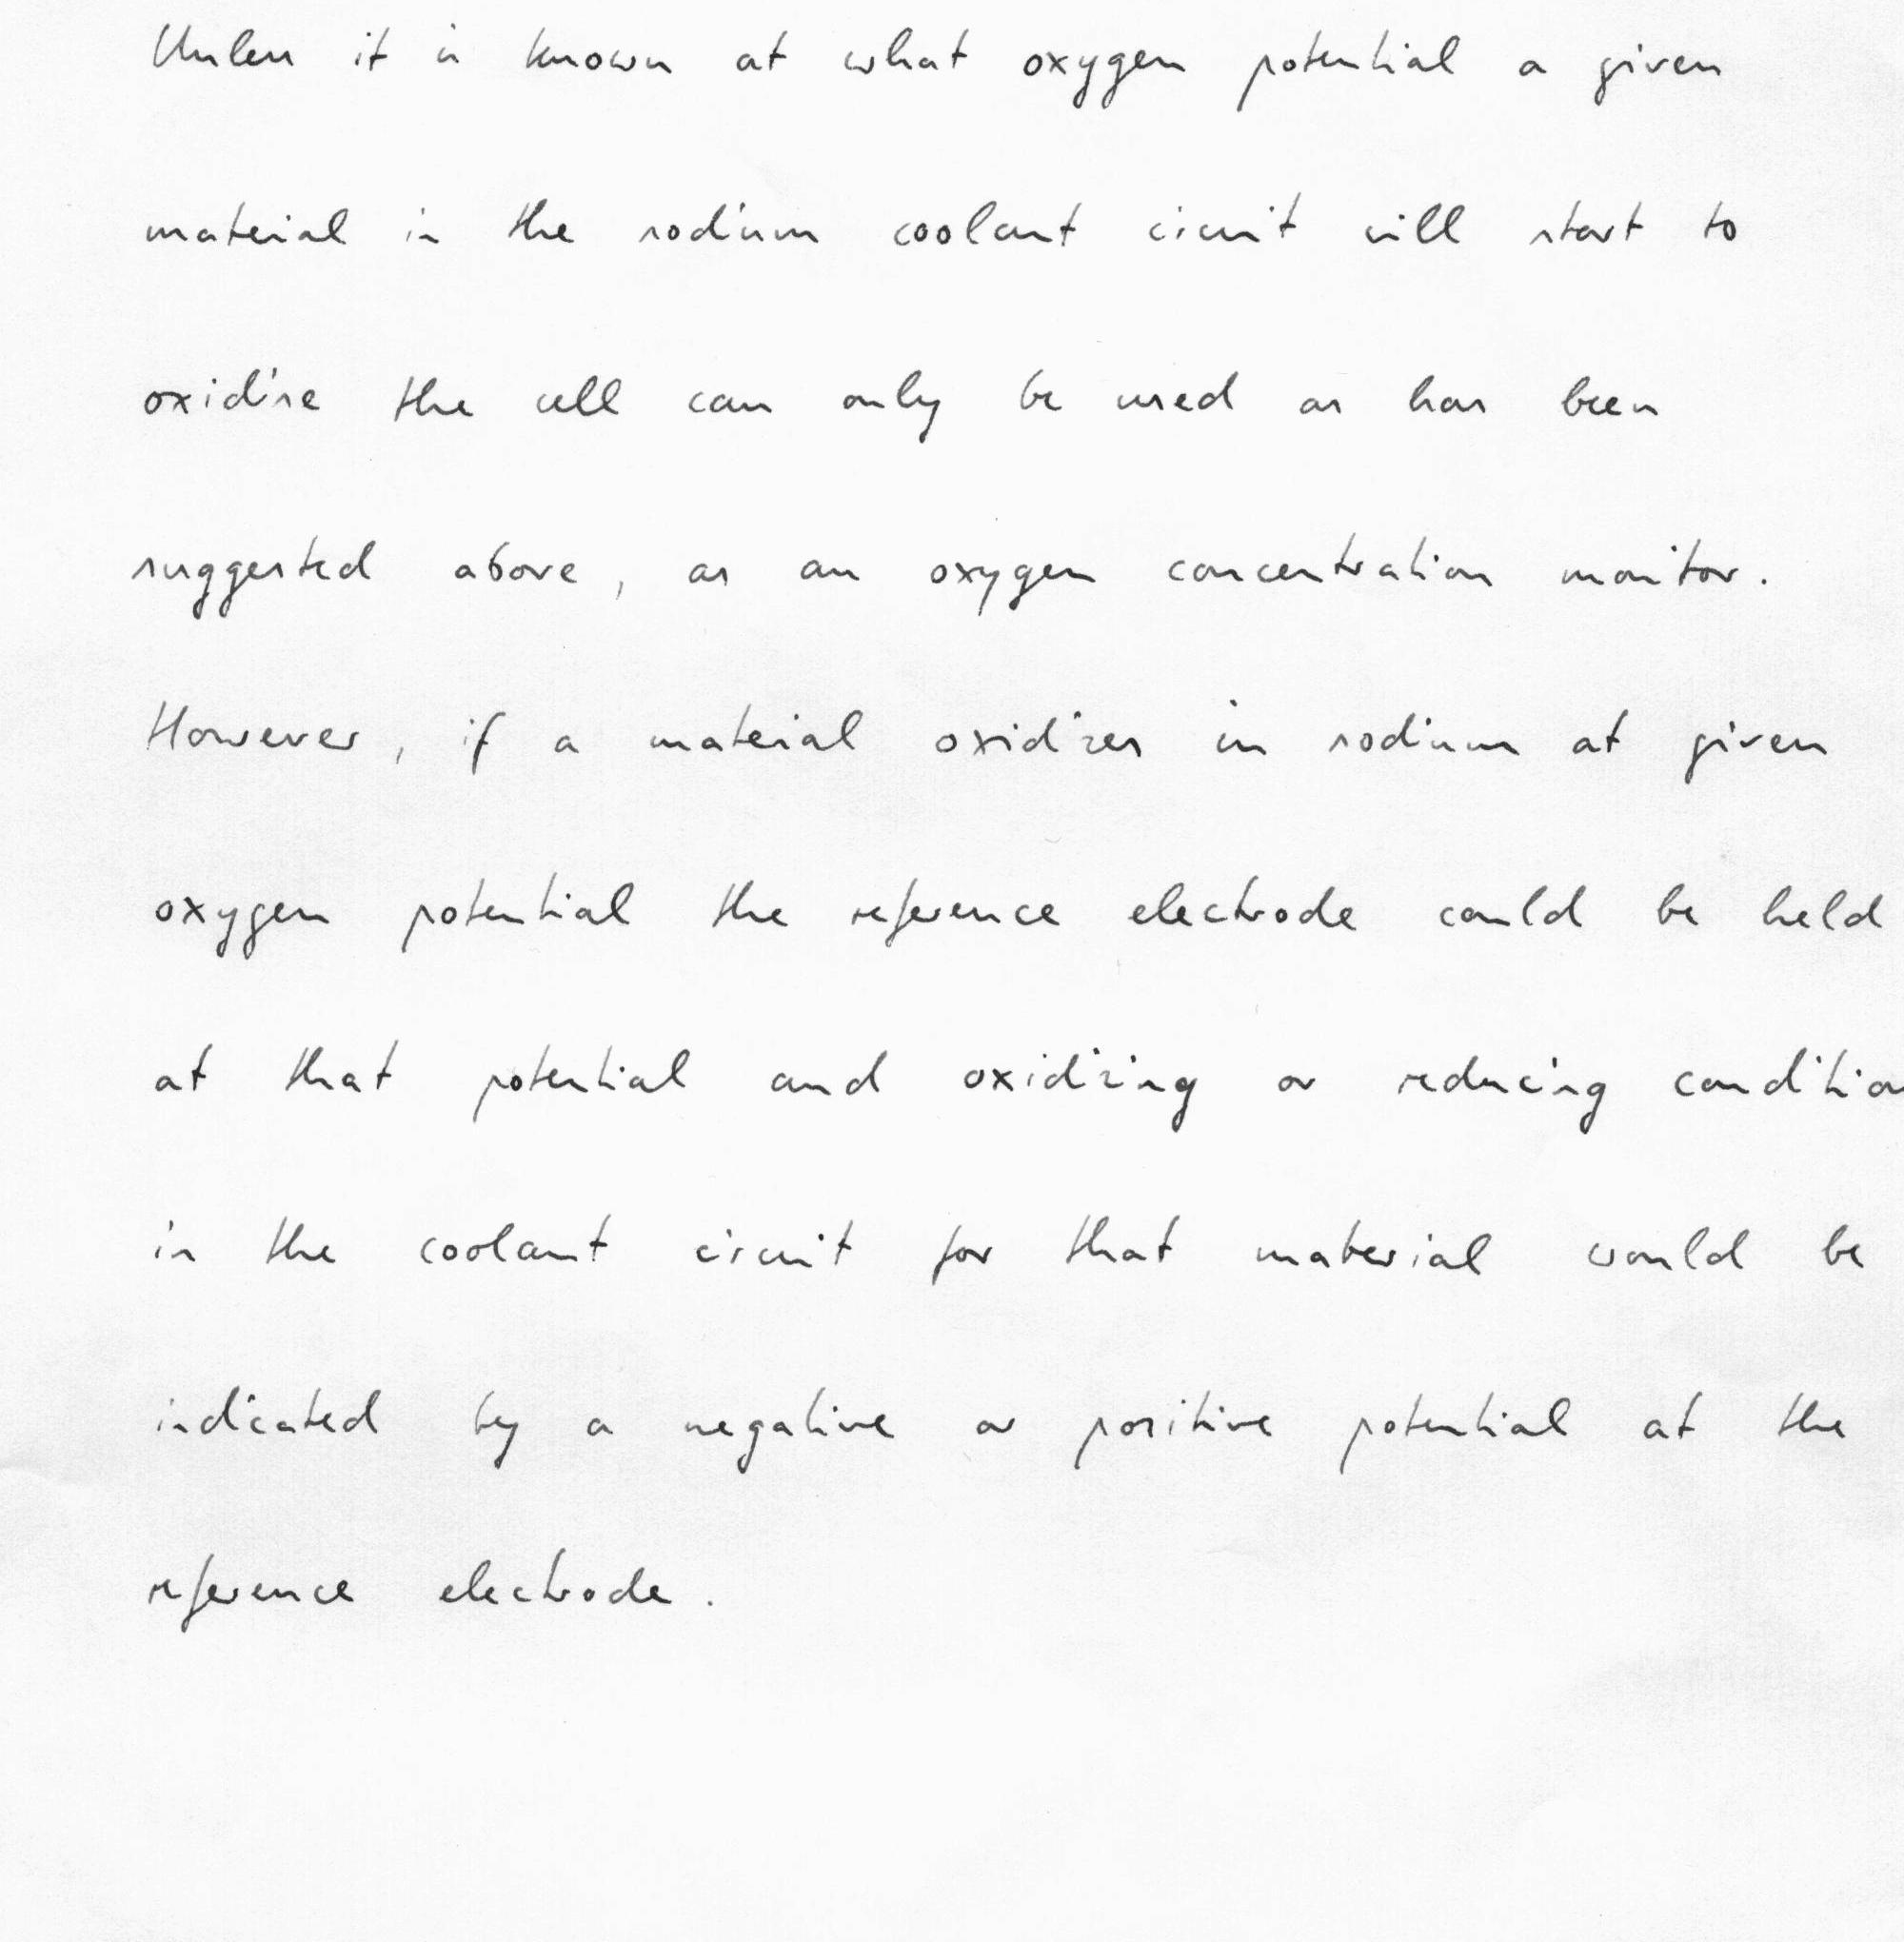 Unless it is known at what oxygen potential a given
material in the sodium coolant circuit will start to
oxidise the cell can only be used as has been
suggested above, as an oxygen concentration monitor.
However, if a material oxidizes in sodium at given
oxygen potential the reference electrode could be held
at that potential and oxidizing or reducing condition
in the coolant circuit for that material would be
indicated by a negative or positive potential at the
reference electrode.